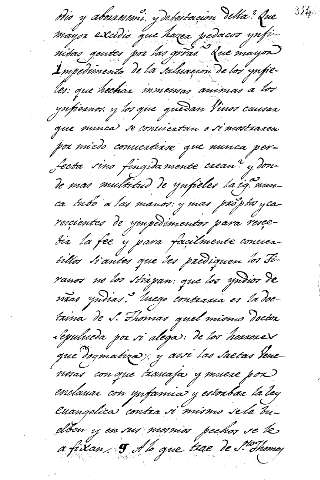 324
odio y aborrecimi.º y detestacion della? Que
mayor excidio que hazer pedaços ynfi-
nitas gentes por las guerras? Que mayor
Impedimento de la saluacion de los ynfie-
les: que hechar inmensas animas a los
ynfiernos: y los que quedan viuos causar
que nunca se conuiertan o si mostraren
por miedo conuertirse que nunca per-
fecta sino fingidamente crean? y don-
de mas multitud de ynfieles la yg.ª nun-
ca tubo a las manos: y mas promptos y ca-
rescientes de ympedimentos para resce-
bir la fee y para facilmente conuer-
tillos si antes que les prediquen los ti-
ranos no los estirpan: que los yndios de
nras yndias.º luego contraria es la doc-
trina de S. Thomas quel mismo doctor
Sepulueda por si alega: de los horrores
que dogmatiza: y assi las saetas vene-
nosas con que trauaja y muere por
enclauar con ynfamia y estorbar la ley
euangelica contra si mismo se le bu-
elben y en sus mesmos pechos se le
afixan. ¶ A lo que trae de S.to Thomas